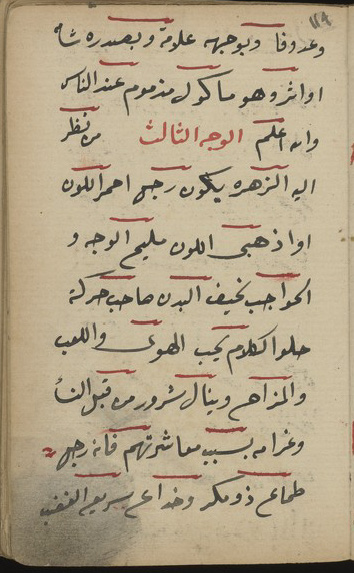 ١٨٤
وعدوفا وبوجهه علامة وبصدره شا
او اثر وهو ماكول مذموم عند الناس
والله اعلم الوجه الثالث من نظر
اليه الزهره يكون رجل احمر اللون
او اذهبى اللون مليح الوجه و
الحواجب نحيف البدن صاحب حركة
حلو الكلام يحب الهوى واللعب
والمزاح وينال شرور من قبل النسا
وغرامه بسبب معاشرتهم فانه رجل
طماع ذو مكر وخداع سريع الغضب